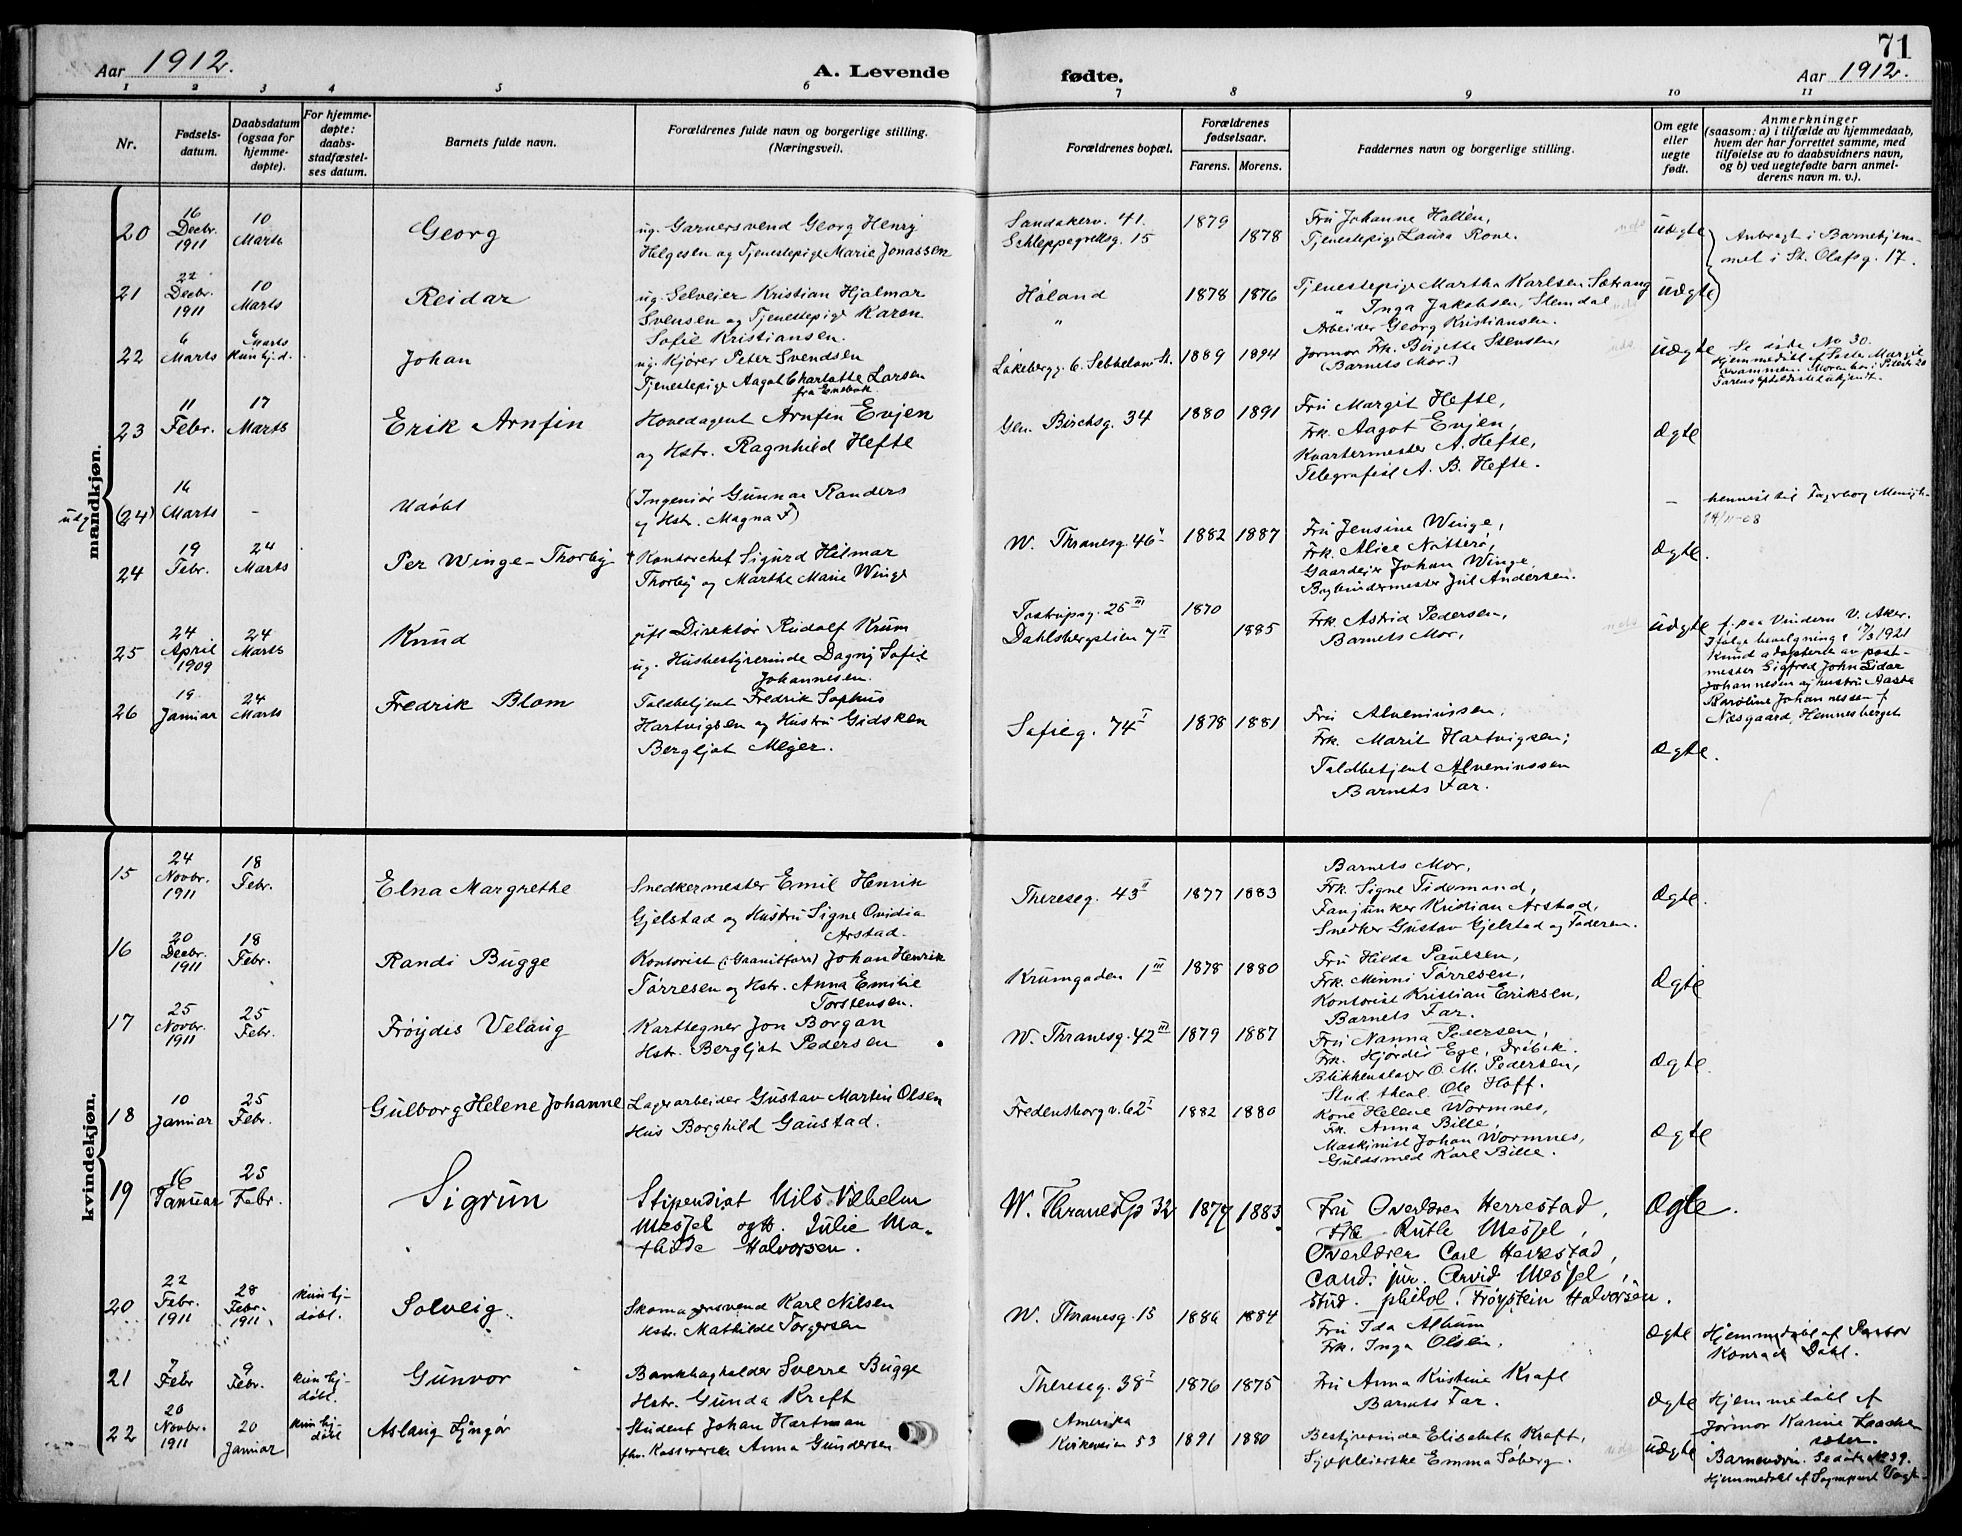 71
Aar 1912.
A. Levende fødte.
Aar 1912.
1 2 3 4 5 6 7 8 9 10 11
Nr.
Fødsels-
datum.
Daabsdatum
(ogsaa for
hjemme-
døpte).
For hjemme-
døpte:
daabs-
stadfæstel-
ses datum.
Barnets fulde navn.
Forældrenes fulde navn og borgerlige stilling.
(Næringsvei).
Forældrenes bopæl.
Forældrenes
fødselsaar.
Farens. Morens.
Faddernes navn og borgerlige stilling.
Om egte
eller
uegte
født.
Anmerkninger
(saasom: a) i tilfælde av hjemmedaab,
hvem der har forrettet samme, med
tilføielse av to daabsvidners navn,
og b) ved uegtefødte barn anmel-
derens navn m. v.).
mandkjøn.
20
16
Decbr.
1911
10
Marts
Georg
ug. Garversvend Georg Henry
Helgesen og Tjenestepige Marie Jonassen
Sandakerv. 41.
Schleppegrellsg. 15
1879
1878
Fru Johanne Hallén,
Tjenestepige Laura Rove.
uægte
Anbragt i Barnehjem-
met i St. Olafsg. 17.
21
22
Decbr.
1911
10
Marts
Reidar
ug. Selveier Kristian Hjalmar
Svensen og Tjenestepige Karen
Sofie Kristiansen.
Høland
"
1878 1876
Tjenestepige Martha Karlsen Sætrang
" Inga Jakobsen, Slemdal
Arbeider Georg Kristiansen.
uægte
22
6
Marts
6
Marts
kun hj.d.
Johan
ug. Kjører Peter Svendsen
Tjenestepige Aagot Charlotte Larsen
fra Enebak.
1889 1894
Jormor Frk. Birgitte Stensen,
(Barnets Mor)
uægte
Se døde No 30.
23
11
Febr.
17
Marts
Erik Arnfin
Hovedagent Arnfin Evjen
og Hstr. Ragnhild Hefte
Gen. Birchsg. 34
1880 1891
Fru Margit Hefte,
Frk. Aagot Evjen,
Kvartermester A. Hefte,
Telegrafist A. B. Hefte.
Ægte
utg (24)
16
Marts
-
Udøbt
(Ingeniør Gunnar Randers
og Hstr. Magna F)
-
henvist til Fagerborg Menigh.
14/11-08
24
19
Febr.
24
Marts
Per Winge-Thorby
Kontorchef Sigurd Hilmar
Thorby og Marthe Marie Winge
W. Thranesg. 46
1882 1887
Fru Jensine Winge,
Frk. Alice Nøtterø,
Gaardeier Johan Winge,
Bogbindermester Jul Andersen.
Ægte.
25
24
April
1909
24
Marts
Knud
gift Direktør Rudolf Krum
ug. Husbestyrerinde Dagny Sofie
Johannesen.
Tostrupsg. 25 III
Dahlsbergstien 7 II
1870
1885
Frk. Astrid Pedersen,
Barnets Mor.
uægte
f. paa Vindern V. Aker.
Ifølge bevilgning 7/3 1921
Knud adopteret av post-
mester Sigfred John Eidar
Johannesen og hustru Aasta
Karoline Johannessen f.
Nesgaard, Hemnesberget
26
19
Januar
24
Marts
Fredrik Blom
Toldbetjent Fredrik Sophus
Hartvigsen og Hustru Gidsken
Bergljot Mejer.
Sofieg. 74 I
1878 1881
Fru Alveniussen,
Frk. Marit Hartvigsen,
Toldbetjent Alveniussen
Barnets Far.
Ægte.
kvindekjøn.
15
24
Novbr.
1911
18
Febr.
Elna Margrethe
Snedkermester Emil Henrik
Gjelstad og Hustru Signe Ovidia
Arstad.
Thereseg. 43 II
1877 1883
Barnets Mor,
Frk. Signe Tidemand,
Fanjunker Kristian Arstad,
Snedker Gustav Gjelstad og Faderen.
Ægte.
16
20
Decbr.
1911
18
Febr.
Randi Bugge
Kontorist (i Granitforr) Johan Henrik
Tørresen og Hstr. Anna Emilie
Torstensen.
Krumgaden 1 III
1878 1880
Fru Hilda Paulsen,
Frk. Minni Tørresen,
Kontorist Kristian Eriksen,
Barnets Far.
Ægte
17
25
Novbr.
1911
25
Febr.
Frøydis Velaug
Karttegner Jon Borgan
Hstr. Bergljot Pedersen
W. Thranesg. 42 III
1879 1887
Fru Nanna Petersen,
Frk. Hjørdis Ege, Drøbak.
Blikkenslager O. M. Pedersen,
Stud. theol. Ole Hoff.
Ægte.
18
10
Januar
25
Febr.
Gulborg Helene Johanne
Lagerarbeider Gustav Martin Olsen
Hus Borghild Gaustad.
Fredensborgv. 62 I
1882 1880
Kone Helene Wormnes,
Frk. Anna Bille,
Maskinist Johan Wormnes,
Guldsmed Karl Bille.
Ægte
19
16
Januar
25
Febr.
Sigrun
Stipendiat Nils Vilhelm
Messel og H. Julie Ma-
thilde Halvorsen.
W. Thranes G 32
1877 1883
Fru Overlærer Herrestad,
Frk. Ruth Messel,
Overlærer Carl Herrestad,
cand. jur. Arvid Messel,
stud. philol. Frøystein Halvorsen.
Ægte.
20
22
Febr.
1911
28
Febr.
1911.
kun hj-
døbt.
Solveig.
Skomagersvend Karl Nilsen
Hstr. Mathilde Torgersen
W. Thranesg. 15
1886 1884
Fru Ida Alhum
Frk. Inga Olsen.
Ægte
Hjemmedøbt af Pastor
Konrad Dahl.
21
7
Febr
9
Febr.
kun hj-
døbt.
Gunvor
Bankbogholder Sverre Bugge
Hstr. Gunda Kraft
Thereseg. 38 I
1876 1875
Fru Anna Kristine Kraft
Barnets Far.
Ægte
Hjemmedøbt af
Jormor Karine Laache
sæter.
22
20
Novbr.
1911
20
Januar
kun hj-
døbt
Aslaug Lyngør
Student Johan Hartman
fhv. Kassererske Anna Gundersen
Amerika
Kirkeveien 53
1891 1880
Bestyrerinde Elisabeth Kraft,
Sypleierske Emma Soberg.
uægte
Se døde No 39.